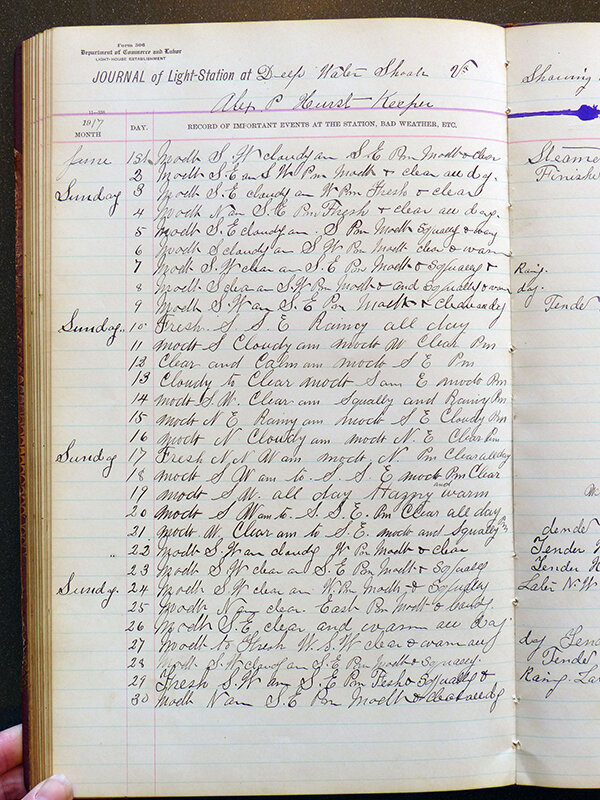 Form 306
Department of Commerce and Labor
LIGHT-HOUSE ESTABLISHMENT
JOURNAL of Light-Station at Deep Water Shoals Va
Alex P Hurst Keeper
1917
MONTH DAY. RECORD OF IMPORTANT EVENTS AT THE STATION, BAD WEATHER, ETC.
June 1st Modt S. W cloudy am S. E Pm Modt & clear
2 Modt S. E am S W Pm Modt & clear all day.
Sunday 3 Modt S. E cloudy am W Pm Fresh & clear
4 Modt N am S. E Pm Fresh & clear all day.
5 Modt S. E cloudy am. S Pm Modt Squally &
6 Modt S cloudy am S W Pm modt clear & warm
7 Modt S. W clear am S. E Pm Modt & Squally &
8 Modt S clear am S. W Pm Modt & and Squally & warm
9 Modt S. W am S. E Pm Modt & clear all day
Sunday.. 10 Fresh S S. E Rainy all day
11 modt S Cloudy am modt W Clear Pm
12 Clear and Calm am modt S E Pm
13 Cloudy to Clear modt S am E modt Pm
14 modt S. W. Clear am Squally and Rainy Pm
15 modt N E Rainy am modt S E Cloudy Pm
16 modt N Cloudy am modt N. E Clear Pm
Sunday 17 Fresh N. N W am modt N Pm Clear all day
18 modt S W am to S. S E modt Pm Clear
19 modt S W. all day Happy and warm
20 modt S W am to S. S. E. Pm Clear all day
21. modt W Clear am to S. E. modt and Squally Pm
.. 22 Modt S. W am cloudy W Pm Modt & clear
23 Modt S. W clear am S. E Pm Modt & Squally
Sunday. 24 Modt S. W clear am W. Pm Modt, & Squally
25 Modt N am clear East Pm Modt &
26 Modt S. E clear and warm all day
27 Modt to Fresh W. S. W clear & warm all
28 Modt S. W cloudy am S. E Pm Modt & Squally.
29 Fresh S. W am S. E Pm Fresh & Squally &
30 Modt N am S. E Pm Modt & clear all day
Showing
Steamer
Finished
Rainy.
day.
Tender
Tender
Tender
Later N. W
day Tender
Tender
Rainy. La